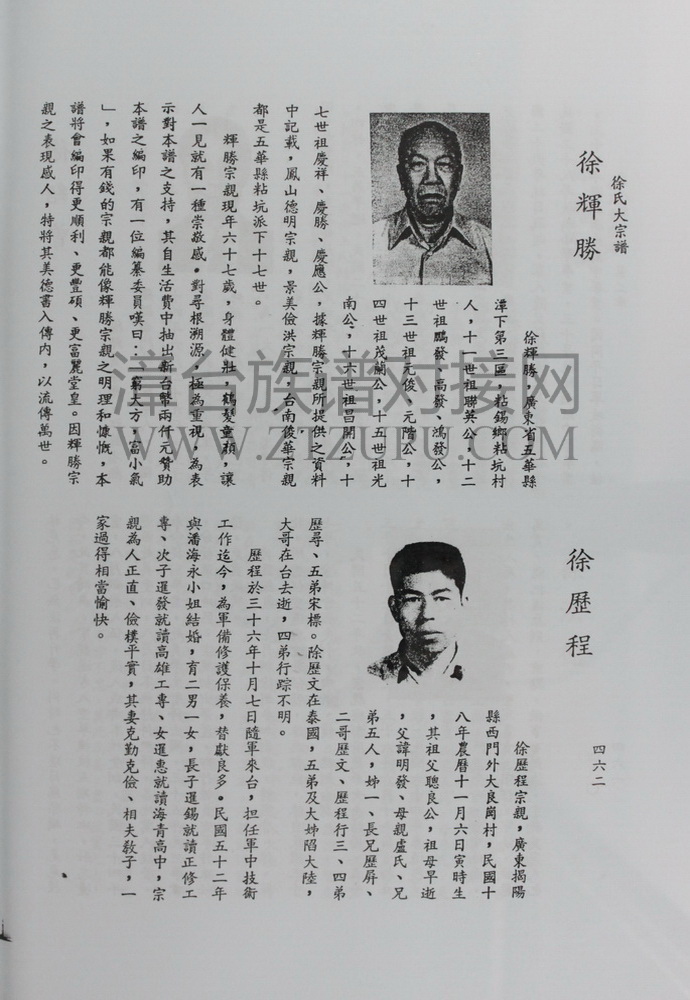 徐氏大宗譜
徐輝勝
徐輝勝，廣東省五華縣
潭下第三區，粘錫鄉粘坑村
人，十一世祖聯英公，十二
世祖鵬發、高發、鴻發公，
十三世祖元俊、元階公，十
四世祖茂蘭公，十五世祖光
南公，十六世祖昌開公，十
七世祖慶祥、慶勝、慶應公，據輝勝宗親所提供之資料
中記載，鳳山德明宗親，景美儉洪宗親，台南俊華宗親
都是五華縣粘坑派下十七世。
輝勝宗親現年六十七歲，身體健壯，鶴髮童顏，讓
人一見就有一種崇敬感。對尋根溯源，極為重視，為表
示對本譜之支持，其自生活費中抽出新台幣兩仟元贊助
本譜之編印，有一位編纂委員嘆曰：「窮大方，富小氣
」，如果有錢的宗親都能像輝勝宗親之明理和慷慨，本
譜將會編印得更順利、更豐碩、更富麗堂皇。因輝勝宗
親之表現感人，特將其美德書入傳內，以流傳萬世。
徐歷程
徐歷程宗親，廣東揭陽
縣西門外大良崗村，民國十
八年農曆十一月六日寅時生
，其祖父聰良公，祖母早逝
，父諱明發、母親盧氏、兄
弟五人，姊一、長兄歷屏、
二哥歷文、歷程行三、四弟
歷尋、五弟宋標。除歷文在泰國，五弟及大姊陷大陸，
大哥在台去逝，四弟行踪不明。
歷程於三十六年十月七日隨軍來台，担任軍中技術
工作迄今，為軍備修護保養，替獻良多。民國五十二年
與潘海永小姐結婚，育二男一女，長子暹錫就讀正修工
專、次子暹發就讀高雄工專、女暹惠就讀海青高中，宗
親為人正直、儉樸平實，其妻克勤克儉、相夫教子，一
家過得相當愉快。
四六二
漳台族谱对接网
WWW.ZTZUPU.COM